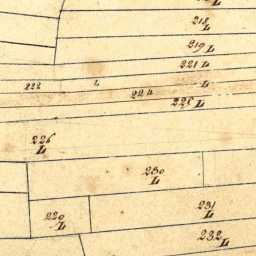 L
218
L
219 L
221 L
222 L L
224
225 L
226
L
230
L
231
L
229
L
232 L